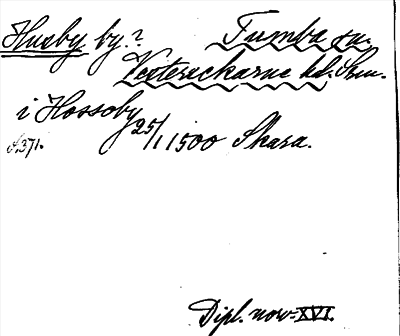 Husby by? Tumba sn.
Vesterrekarne hd. Srm.
i Hossoby 25/1 1500 Skara.
S. 371.
Dipl. nov. XVI.